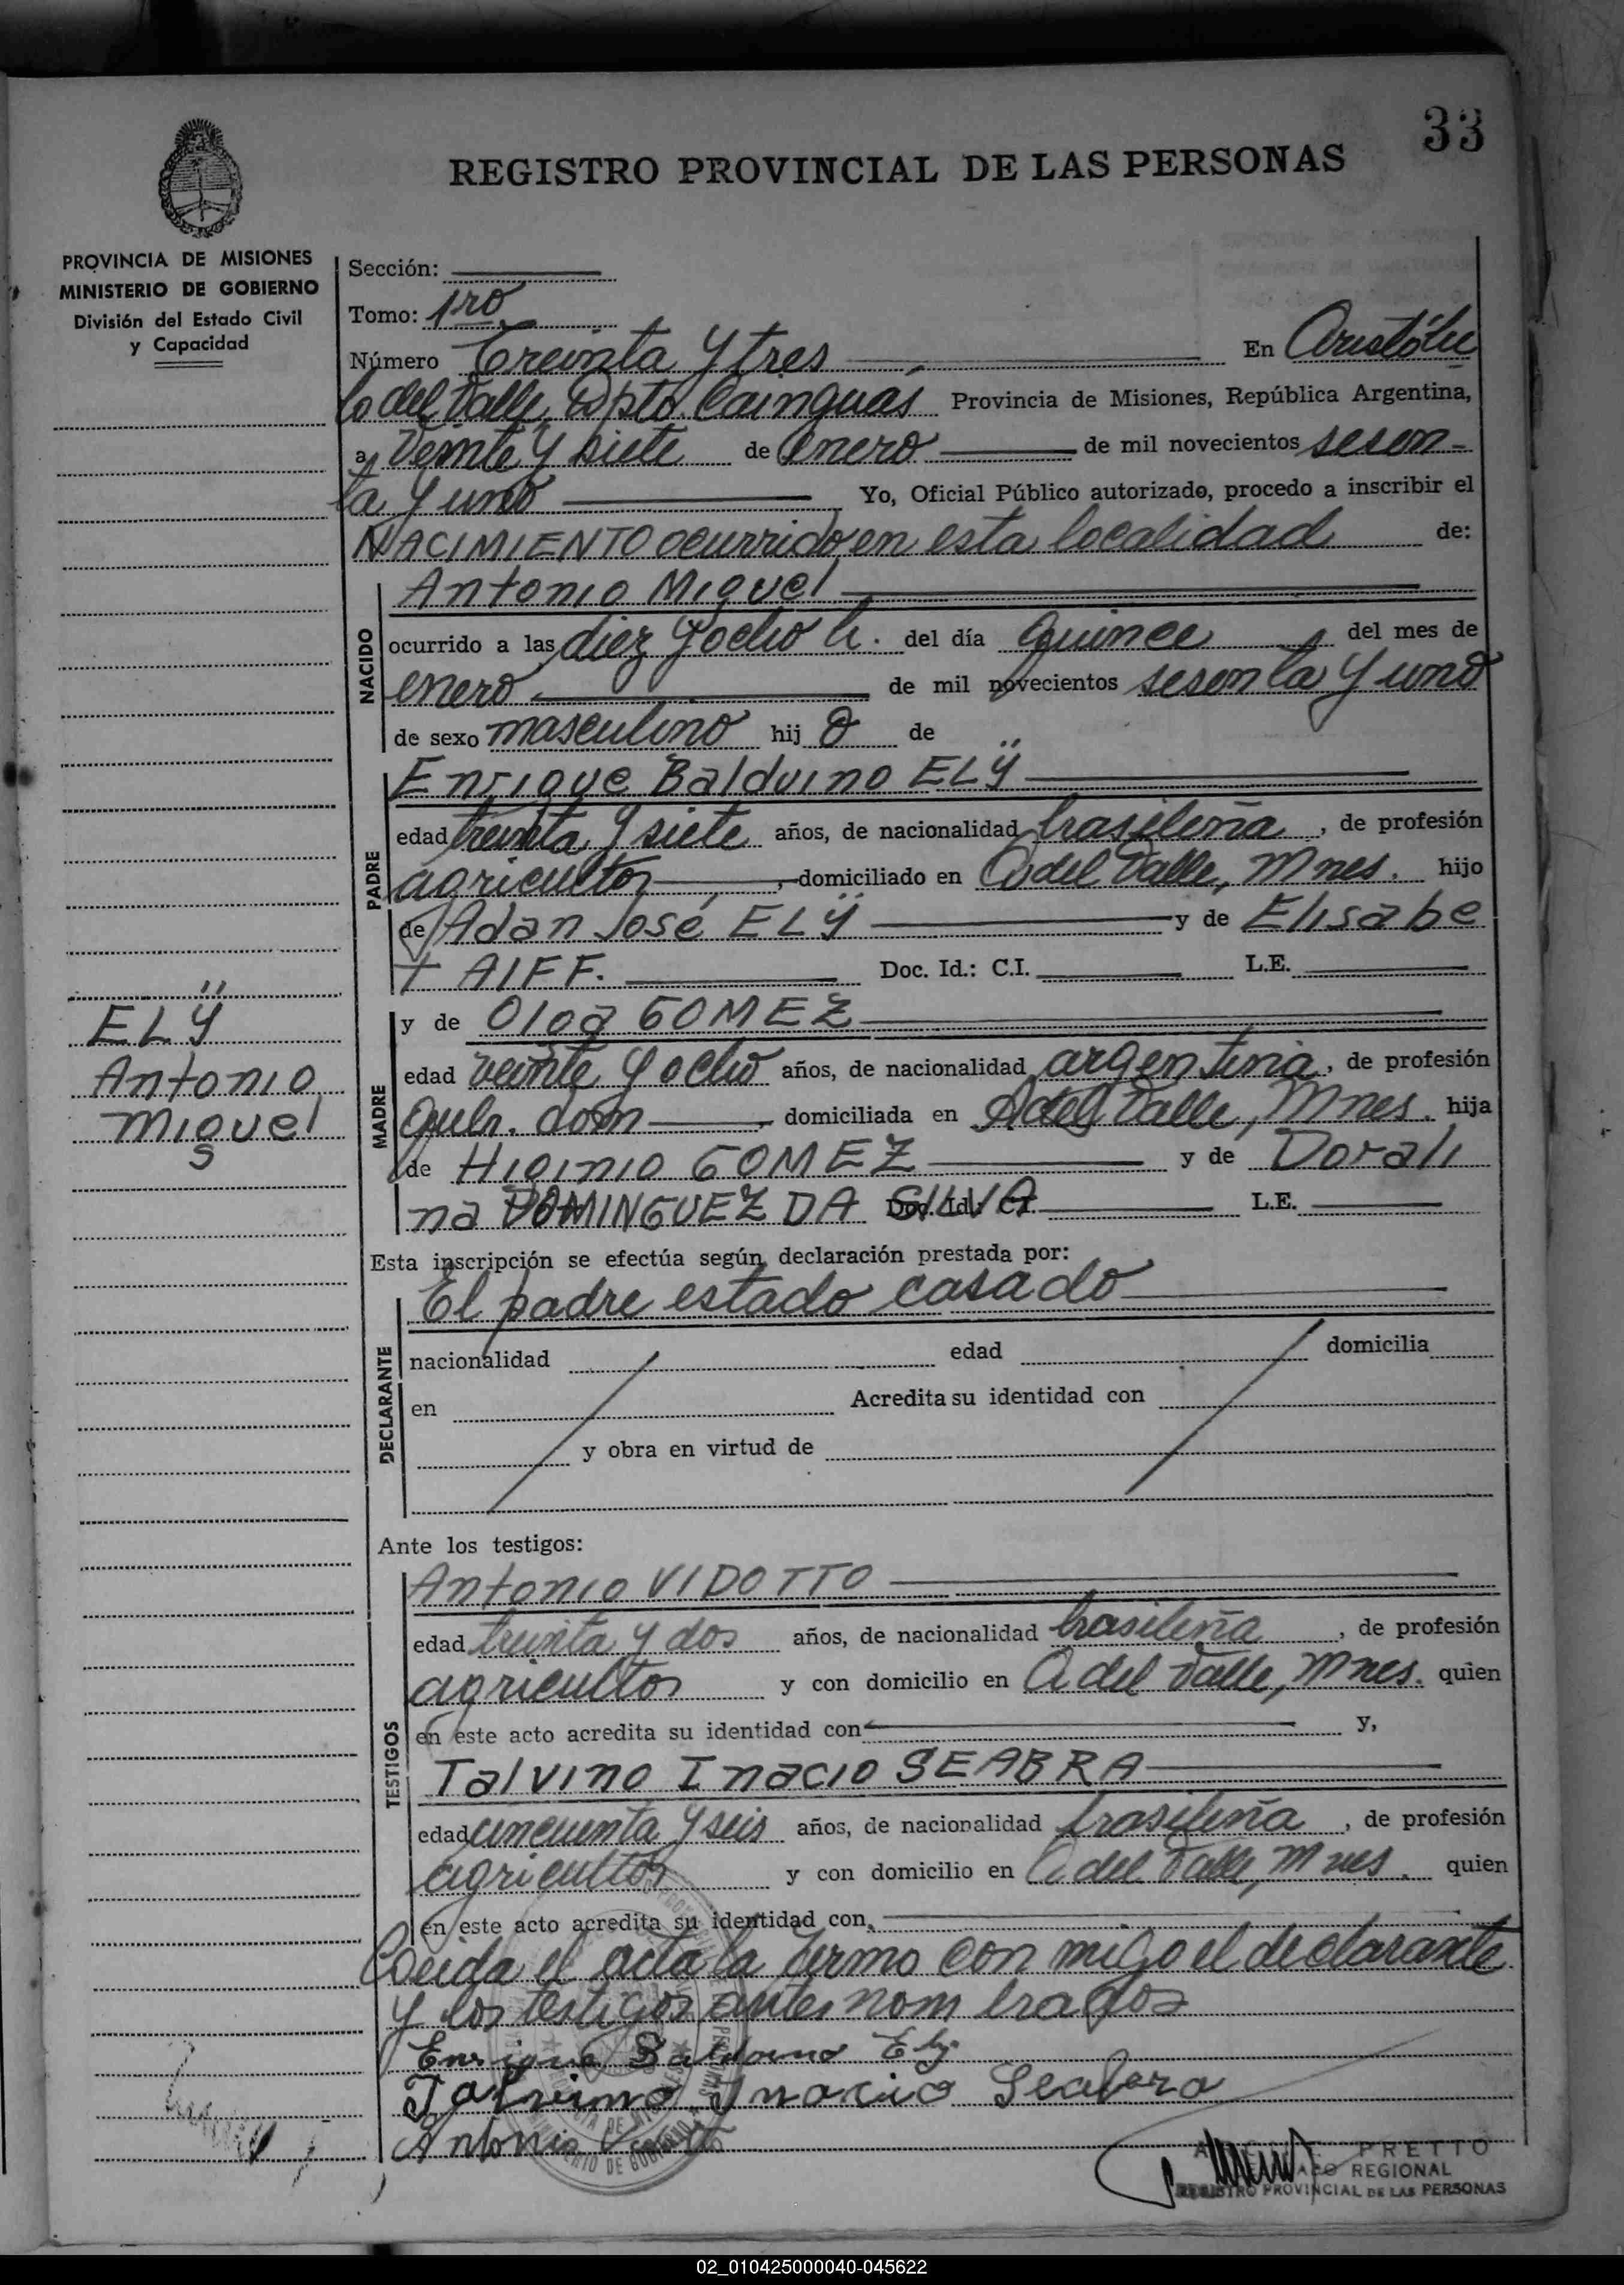 33
REGISTRO PROVINCIAL DE LAS PERSONAS
PROVINCIA DE MISIONES
MINISTERIO DE GOBIERNO
División del Estado Civil
y Capacidad
Sección:
Tomo: 1ro
Número Treinta y tres En Aristóbu
lo del Valle, Dpto. Cainguás Provincia de Misiones, República Argentina,
a Veinte y siete de Enero de mil novecientos sesen-
ta y uno Yo, Oficial Público autorizado, procedo a inscribir el
NACIMIENTO ocurrido en esta localidad de:
NACIDO
Antonio Miguel
ocurrido a las diez y ocho h. del día Quince del mes de
enero de mil novecientos sesenta y uno
de sexo masculino hij o de
PADRE
Enrique Balduino ELÿ
edad treinta y siete años, de nacionalidad brasileña, de profesión
agricultor, domiciliado en A del Valle, Mnes. hijo
de Adan José ELÿ y de Elisabe
t AIFF. Doc. Id.: C.I. L.E.
MADRE
y de Olga GOMEZ
edad veinte y ocho años, de nacionalidad argentina, de profesión
Queh. dom, domiciliada en A del Valle, Mnes. hija
de Higinio GOMEZ y de Dorali
na DOMINGUEZ DA SILVA Doc. Id.: C.I. L.E.
ELÿ
Antonio
Miguel
Esta inscripción se efectúa según declaración prestada por:
DECLARANTE
El padre estado casado
nacionalidad edad domicilia
en Acredita su identidad con
y obra en virtud de
Ante los testigos:
TESTIGOS
Antonio VIDOTTO
edad treinta y dos años, de nacionalidad brasileña, de profesión
agricultor y con domicilio en A del Valle, Mnes. quien
en este acto acredita su identidad con y,
Talvino Inacio SEABRA
edad cincuenta y seis años, de nacionalidad brasileña, de profesión
agricultor y con domicilio en A del Valle, Mnes. quien
en este acto acredita su identidad con,
Leida el acta la firmo con migo el declarante
y los testigos antes nom brados
Enrique Balduino Ely
Talvino Inacio Seabra
Antonio Vidotto
PRETTO
REGIONAL
REGISTRO PROVINCIAL DE LAS PERSONAS
02_010425000040-045622